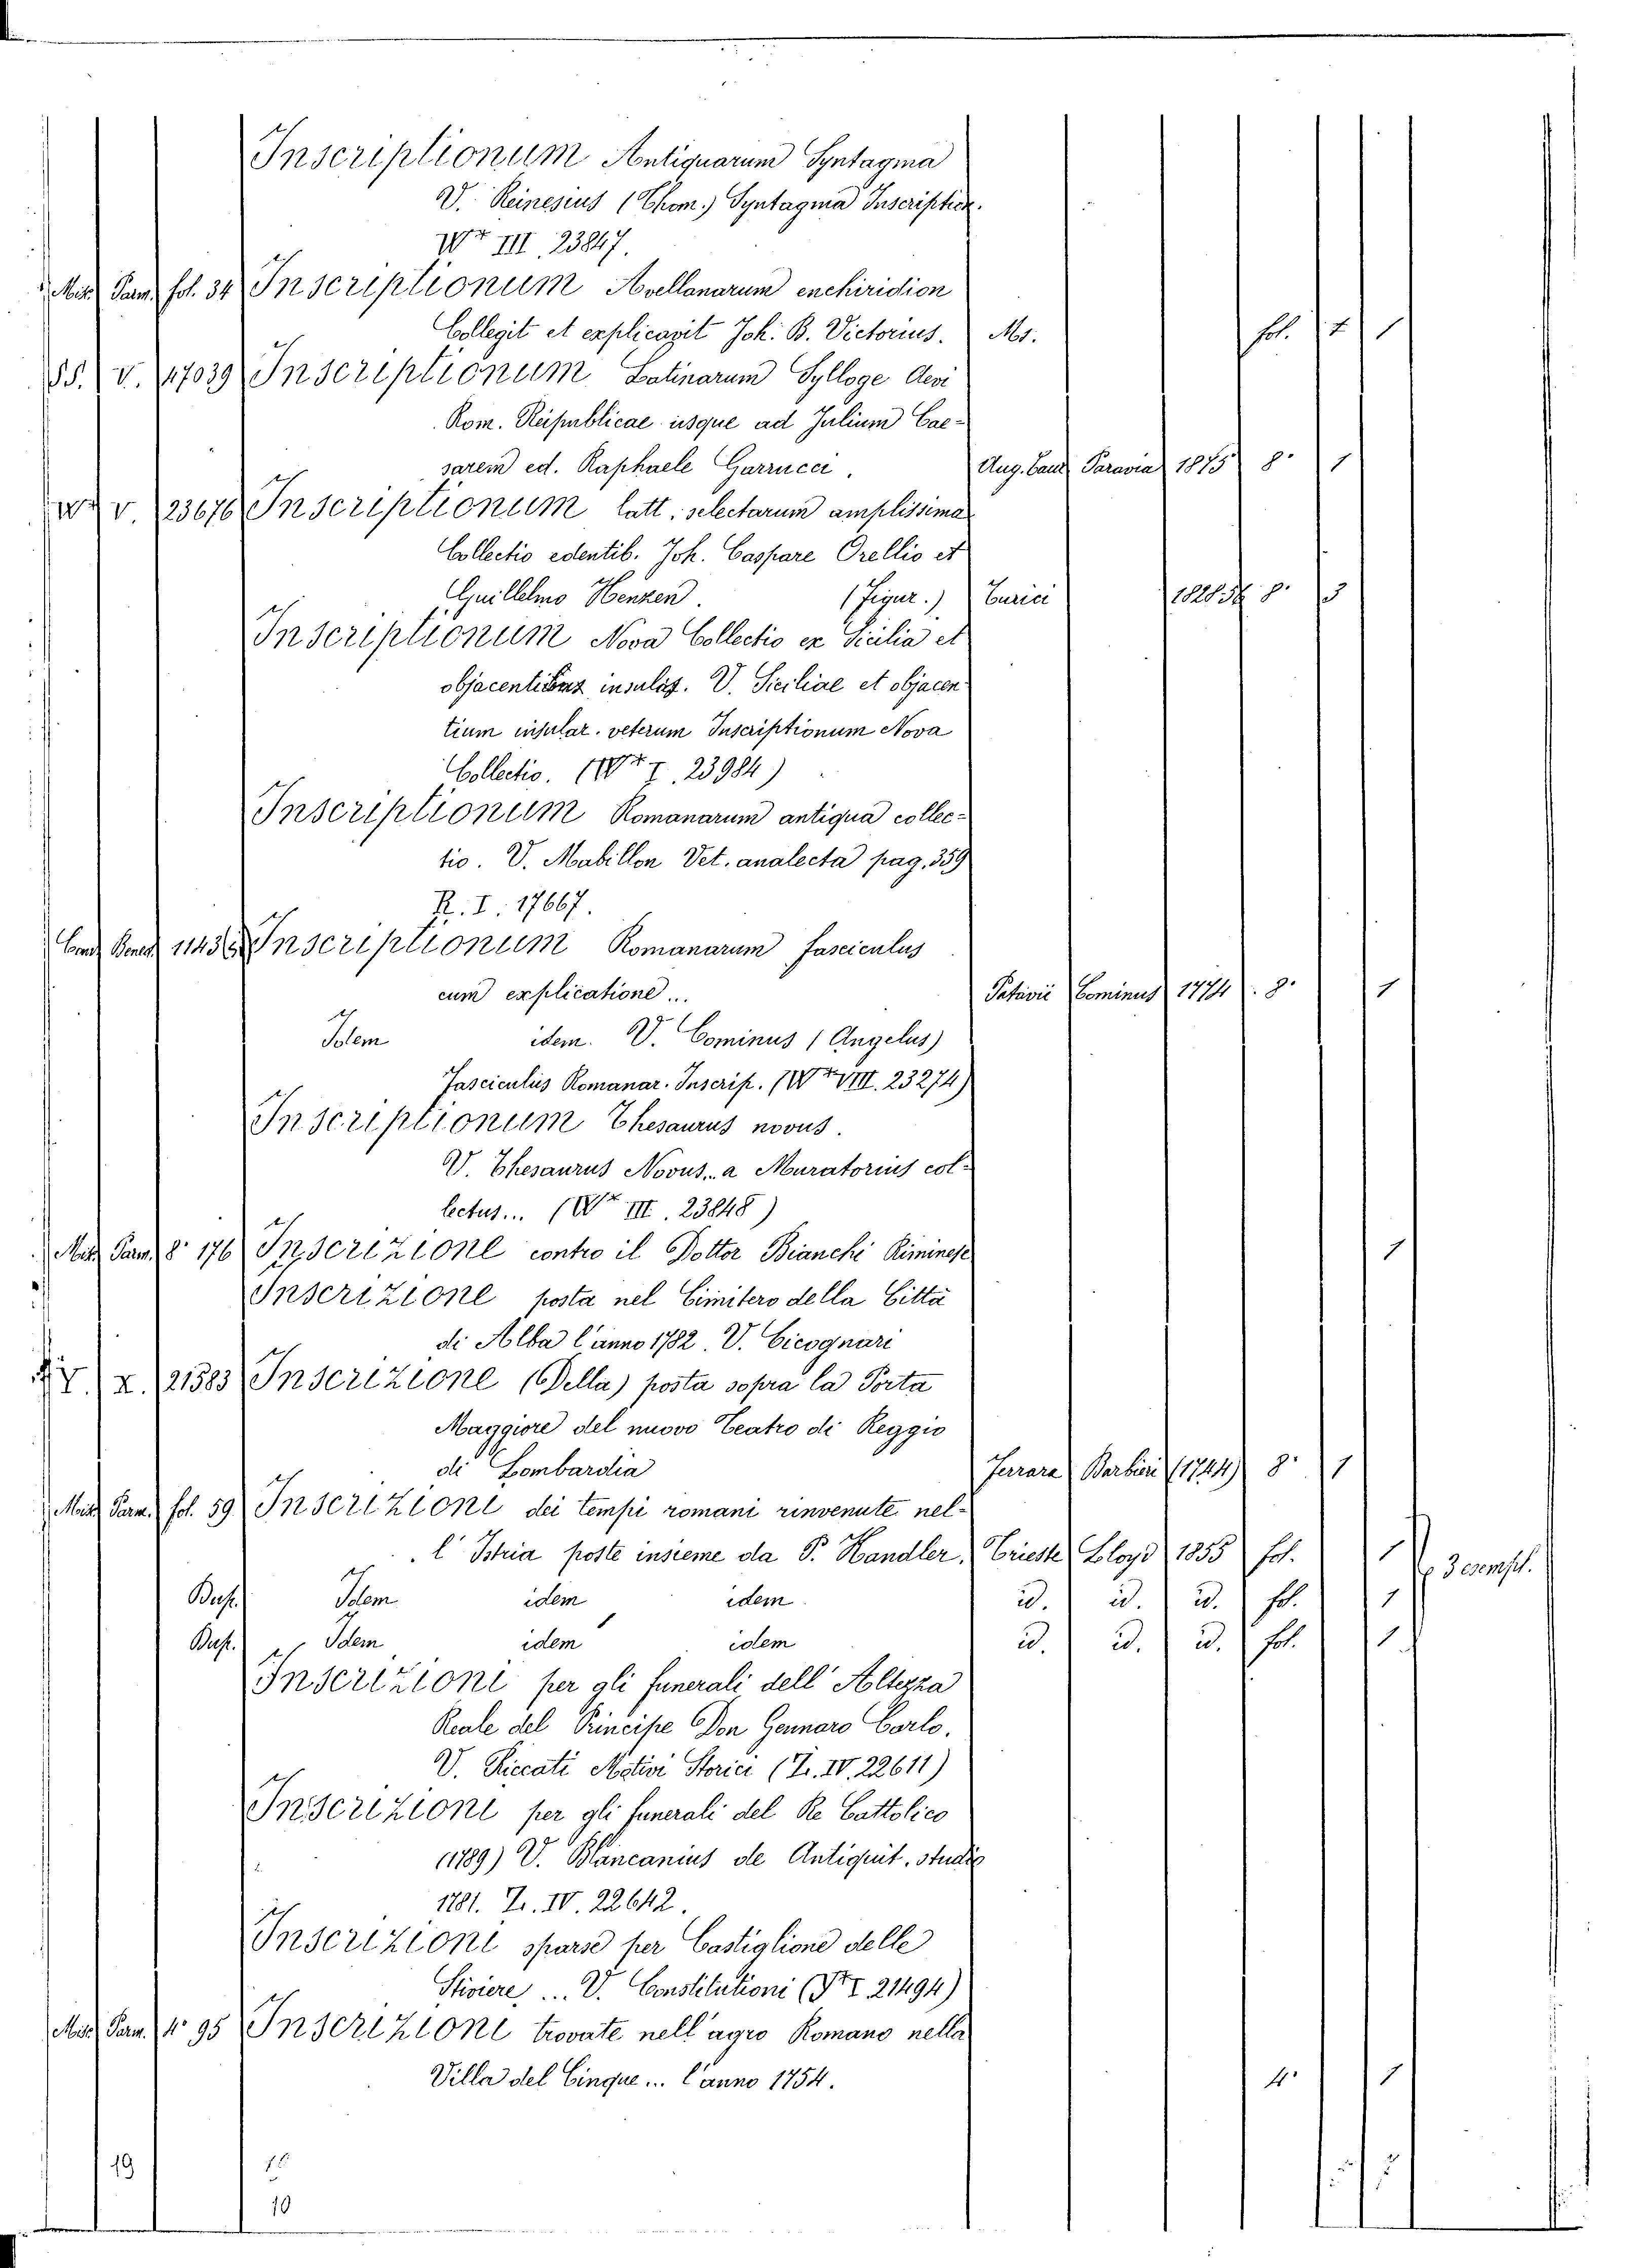 Inscriptionum Antiquarum Syntagma
V. Reinesius (Thom.) Syntagma Inscription.
Wr III. 23847.
Misc. Parm. fol. 34 Inscriptionum Avellanarum enchiridion
Collegit et explicavit Joh. B. Victorius. Ms. fol. 1
SS. V. 17039 Inscriptionum Latinarum Sylloge Aevi
Rom. Reipublicae usque ad Julium Cae-
sarem ed. Raphaele Garrucci. Aug. Taur. Paravia 1875 8° 1
W V. 23676 Inscriptionum latt. selectarum amplissima
Collectio edentib. Joh. Caspare Orellio et
Guillelmo Henzen. (Figur.) Turici 1828.56 8° 3
Inscriptionum Nova Collectio ex Sicilia et
objacentibus insulis. V. Siciliae et objacen-
tium insular. veterum Inscriptionum Nova
Collectio. (Wr I. 23984)
Inscriptionum Romanarum antiqua collec-
tio. V. Mabillon Vet. analecta pag. 359
R. I. 17667.
11436 Inscriptionum Romanarum fasciculus
cum explicatione... Patavii Cominus 1774 8° 1
Idem idem. V. Cominus (Angelus)
Fasciculus Romanar. Inscrip. (Wr VIII. 23274)
Inscriptionum Thesaurus novus.
V. Thesaurus Novus... a Muratorius col-
lectus... (Wr III. 23848)
Misc. Parm. 8° 176 Inscrizione contro il Dottor Bianchi Riminese 1
Inscrizione posta nel Cimitero della Città
di Alba l'anno 1782. V. Cicognari
Y. X. 21583 Inscrizione (Della) posta sopra la Porta
Maggiore del nuovo Teatro di Reggio
di Lombardia Ferrara Barbieri (1744) 8° 1
Misc. Parm. fol. 59 Inscrizioni dei tempi romani rinvenute nel-
l'Istria poste insieme da P. Kandler. Trieste Lloyd 1855 fol. 1 3 esempl.
Bup. Idem idem idem id. id. id. fol. 1
Bup. Idem idem idem id. id. id. fol. 1
Inscrizioni per gli funerali dell'Altezza
Reale del Principe Don Gennaro Carlo.
V. Riccati Motivi Storici (Zr. IV. 22611)
Inscrizioni per gli funerali del Re Cattolico
(1789) V. Blancanius de Antiquit. studio
1781. Zr. IV. 22642.
Inscrizioni sparse per Castiglione delle
Stiviere... V. Constitutioni (Yr I 21494)
Misc. Parm. 4° 95 Inscrizioni trovate nell'agro Romano nella
Villa del Cinque... l'anno 1754. 4° 1
19
10